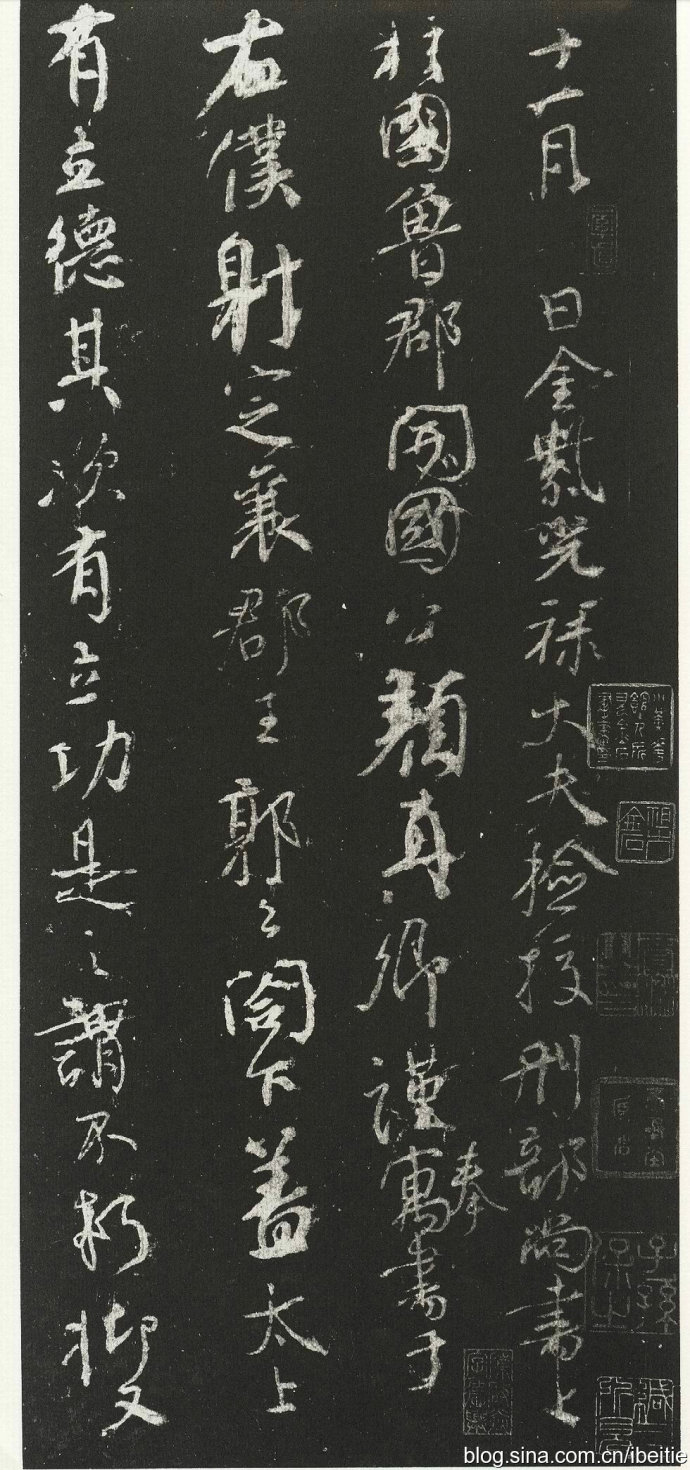 十一月　日金紫光禄大夫檢校刑部尚書上
柱國魯郡開國公顔真卿謹奉寓書于
右僕射定襄郡王郭公閤下蓋太上
有立德其次有立功是之謂不朽抑又
blog.sina.com.cn/ibeitie